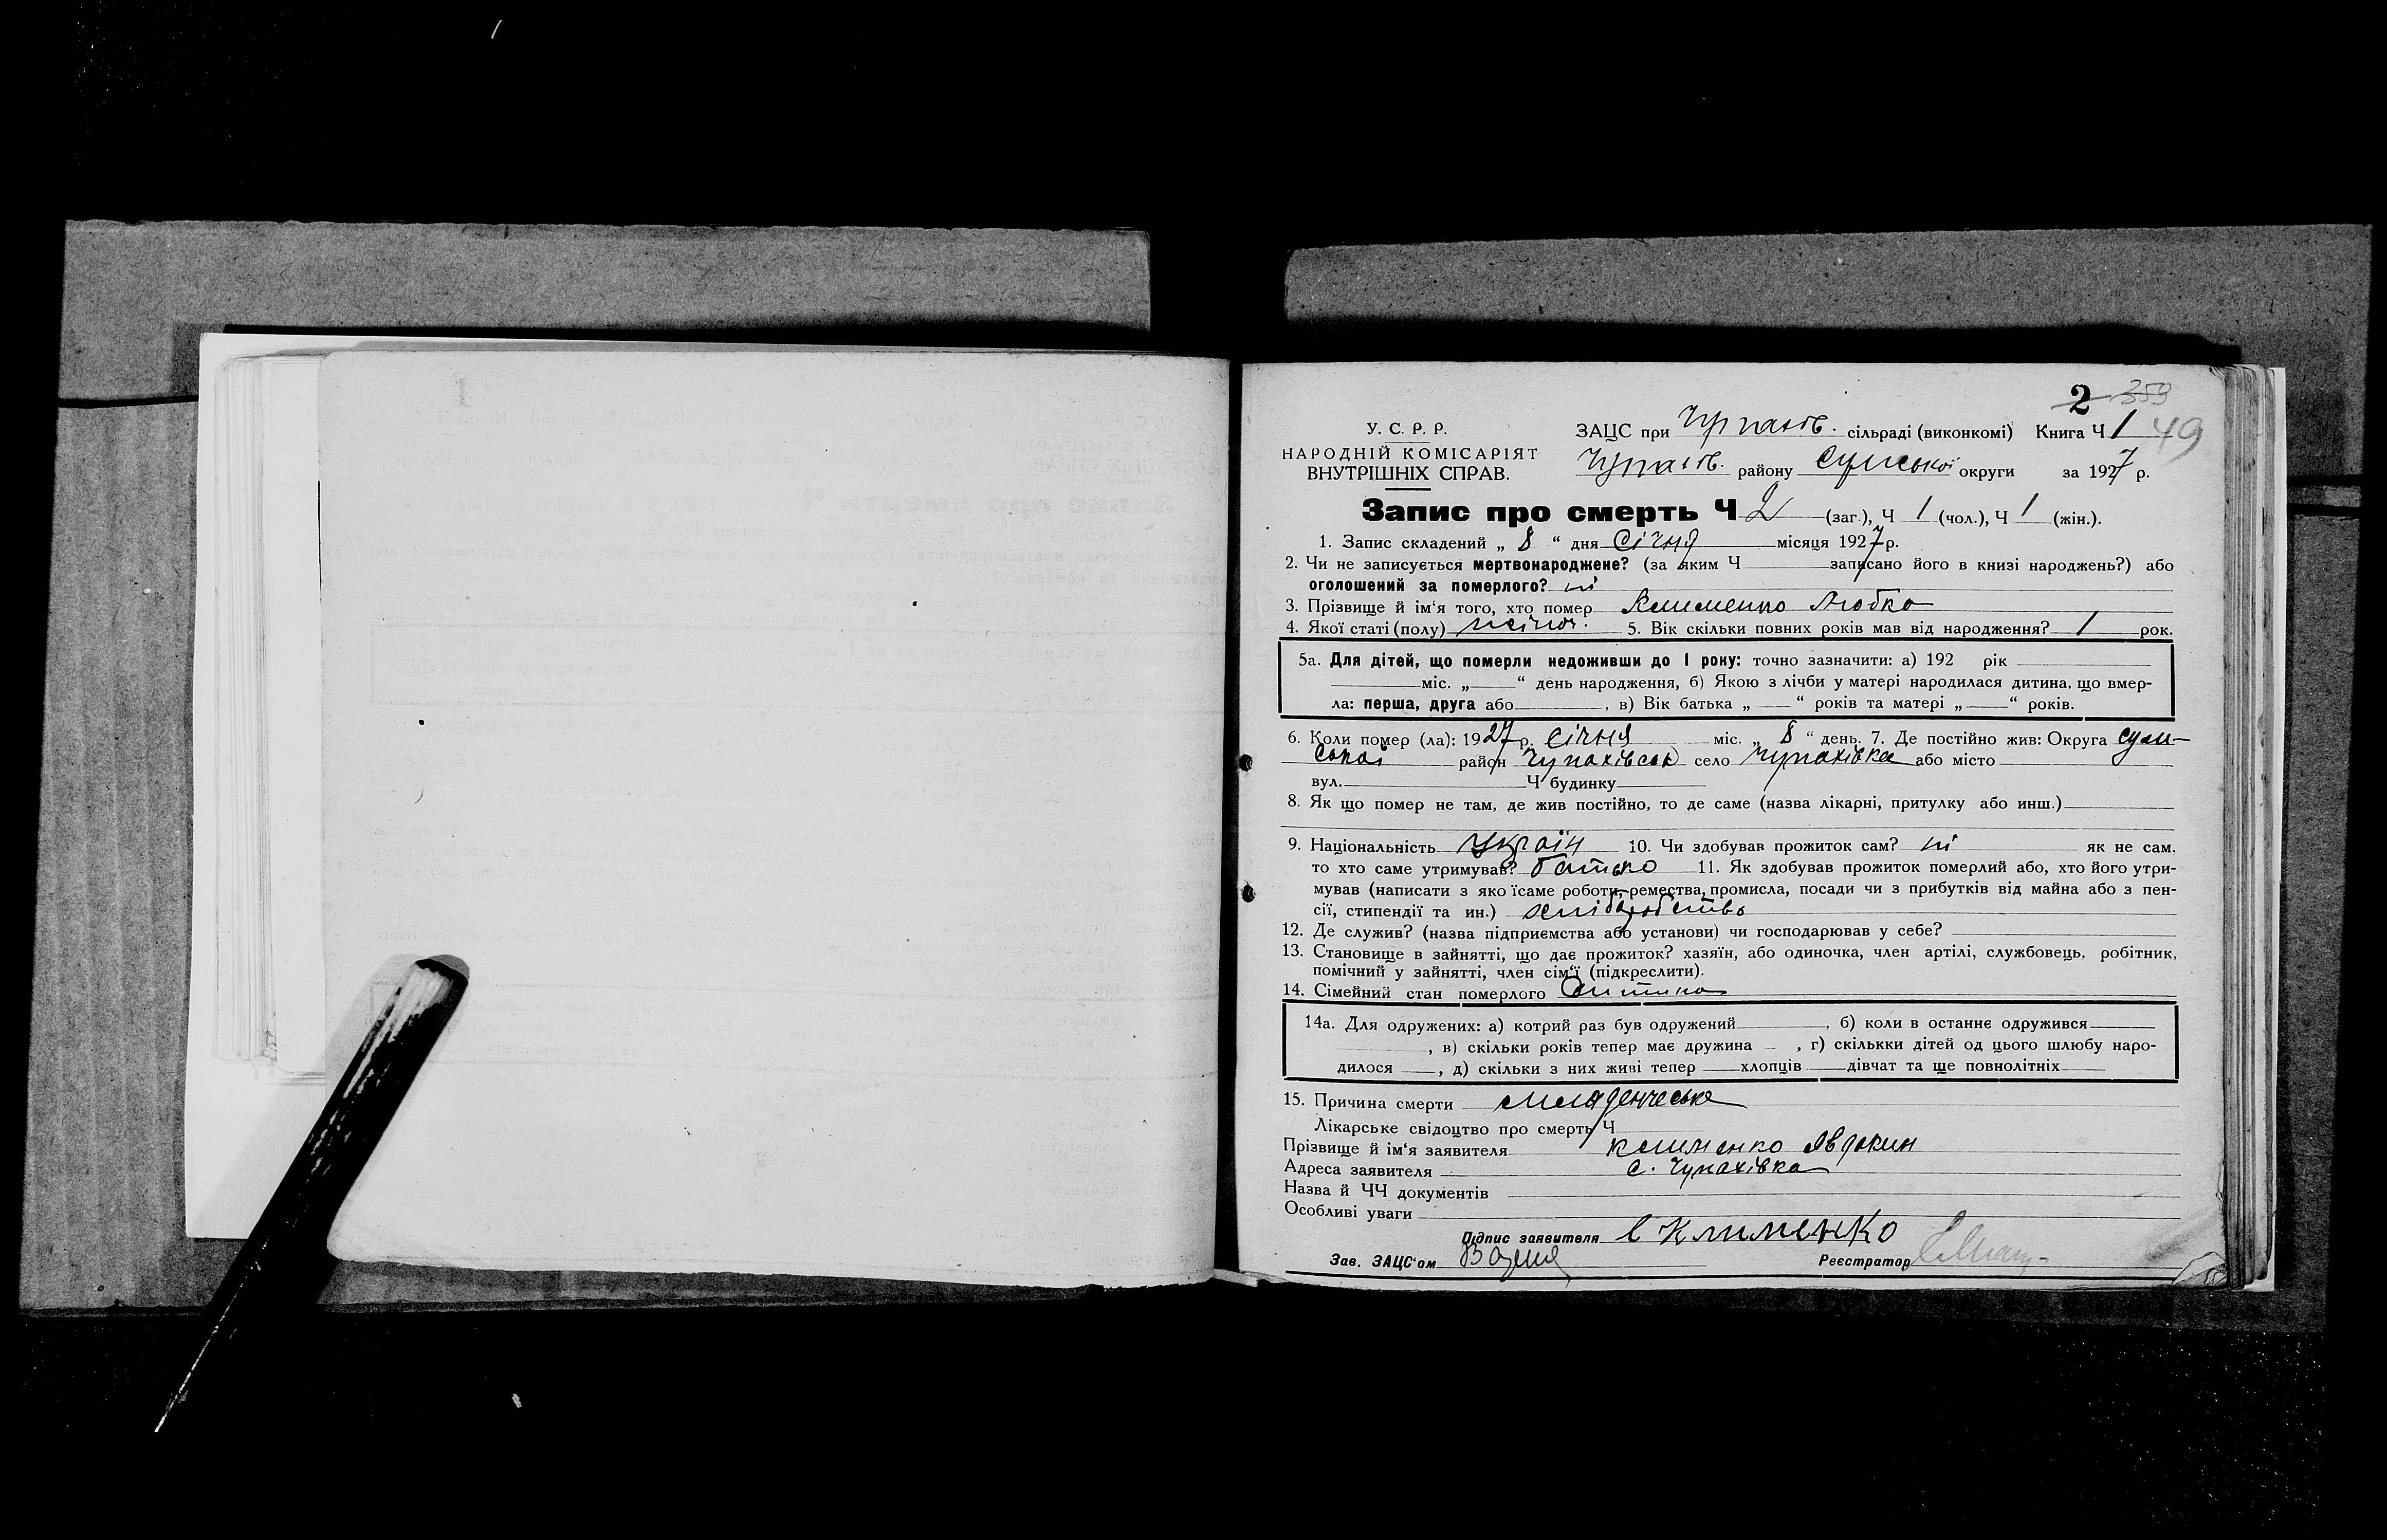 2 359
У. С. Р. Р.
НАРОДНІЙ КОМІСАРІЯТ
ВНУТРІШНІХ СПРАВ.
ЗАЦС при Чупахів. сільраді (виконкомі) Книга Ч 1 49
Чупахів. району Сумської округи за 1927 р.
Запис про смерть Ч 2 (заг.), Ч 1 (чол.), Ч 1 (жін.).
1. Запис складений „ 8 “ дня Січня місяця 1927 р.
2. Чи не записується мертвонароджене? (за яким Ч записано його в книзі народжень?) або
оголошений за померлого? ні
3. Прізвище й ім‘я того, хто помер Клименко Любка
4. Якої статі (полу) жіноч. 5. Вік скільки повних років мав від народження? 1 рок.
5а. Для дітей, що померли недоживши до 1 року: точно зазначити: а) 192 рік
міс. „ “ день народження, б) Якою з лічби у матері народилася дитина, що вмер-
ла: перша, друга або , в) Вік батька „ “ років та матері „ “ років.
6. Коли помер (ла): 1927 р. січня міс. „ 8 “ день. 7. Де постійно жив: Округа Сум-
ської район Чупахівськ село Чупахівка або місто
вул. Ч будинку
8. Як що помер не там, де жив постійно, то де саме (назва лікарні, притулку або инш.)
9. Національність Україн 10. Чи здобував прожиток сам? ні як не сам,
то хто саме утримував? батько 11. Як здобував прожиток померлий або, хто його утри-
мував (написати з яко їсаме роботи, ремества, промисла, посади чи з прибутків від майна або з пен-
сії, стипендії та ин.) хліборобство
12. Де служив? (назва підприємства або установи) чи господарював у себе?
13. Становище в зайнятті, що дає прожиток? хазяїн, або одиночка, член артілі, службовець, робітник,
помічний у зайнятті, член сім‘ї (підкреслити).
14. Сімейний стан померлого Дитина
14а. Для одружених: а) котрий раз був одружений , б) коли в останнє одружився
, в) скільки років тепер має дружина , г) скількки дітей од цього шлюбу наро-
дилося , д) скільки з них живі тепер хлопців дівчат та ще повнолітніх
15. Причина смерти младенческа
Лікарське свідоцтво про смерть Ч
Прізвище й ім‘я заявителя Клименко Явдоким
Адреса заявителя с. Чупахівка
Назва й ЧЧ документів
Особливі уваги
Підпис заявителя Є Клименко
Зав. ЗАЦС‘ом Реєстратор